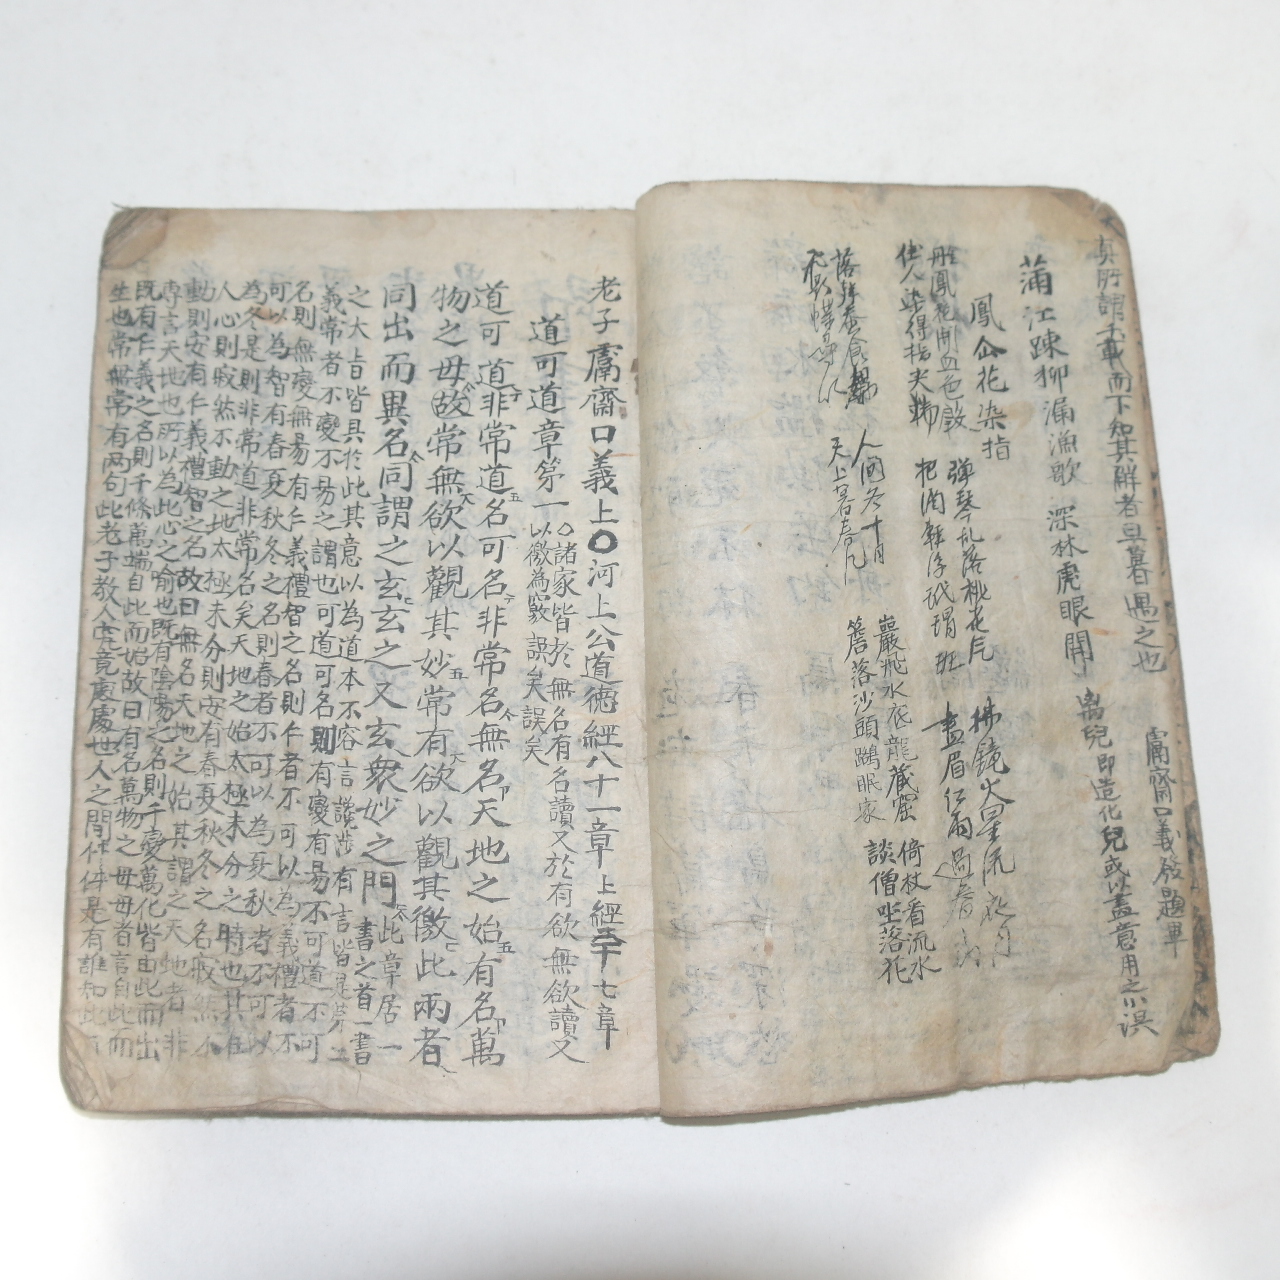 真所謂千載而下知其解者旦暮遇之也
鬳齋口義發題畢
蒲江踈柳漏漁歌 深林虎眼開
造化兒或以盖意用之小誤
鳳仙花染指
鳳花開血色
彈琴乱落桃花片
拂鏡火星流夜月
佳人染得指尖
把酒
畫眉紅雨過春
人間冬十月
天上暮春
巖飛水底龍藏窟
落沙頭鷗眠家
倚杖看流水
談僧坐落花
老子鬳齋口義上〇河上公道德經八十一章 上經三十七章
道可道章第一
〇諸家皆於無名有名讀又於有欲無欲讀又
以徼為竅 誤矣誤矣
道可道非常道名可名非常名無名天地之始有名萬
物之母故常無欲以觀其妙常有欲以觀其徼此兩者
同出而異名同謂之玄玄之又玄衆妙之門 此章居一
書之首一書
之大旨皆具於此其意以為道本不容言纔涉有言皆是第二
義常者不變不易之謂也可道可名則有變有易不可道不可
名則無變無易有仁義禮智之名則仁者不可以為義禮者不
可以為智有春夏秋冬之名則春者不可以為夏秋者不可以
為冬是則非常道非常名矣天地之始太極未分之時也其在
人心則寂然不動之地太極未分則安有春夏秋冬之名寂然不
動則安有仁義禮智之名故曰無名天地之始其謂之天地者非
專言天地也所以為此心之喻也既有陰陽之名則千變萬化皆由此而出
既有仁義之名則千條萬端自此而始故曰有名萬物之母母者言自此而
生也常無常有兩句此老子教人究竟處處世人之間件件是有誰知此